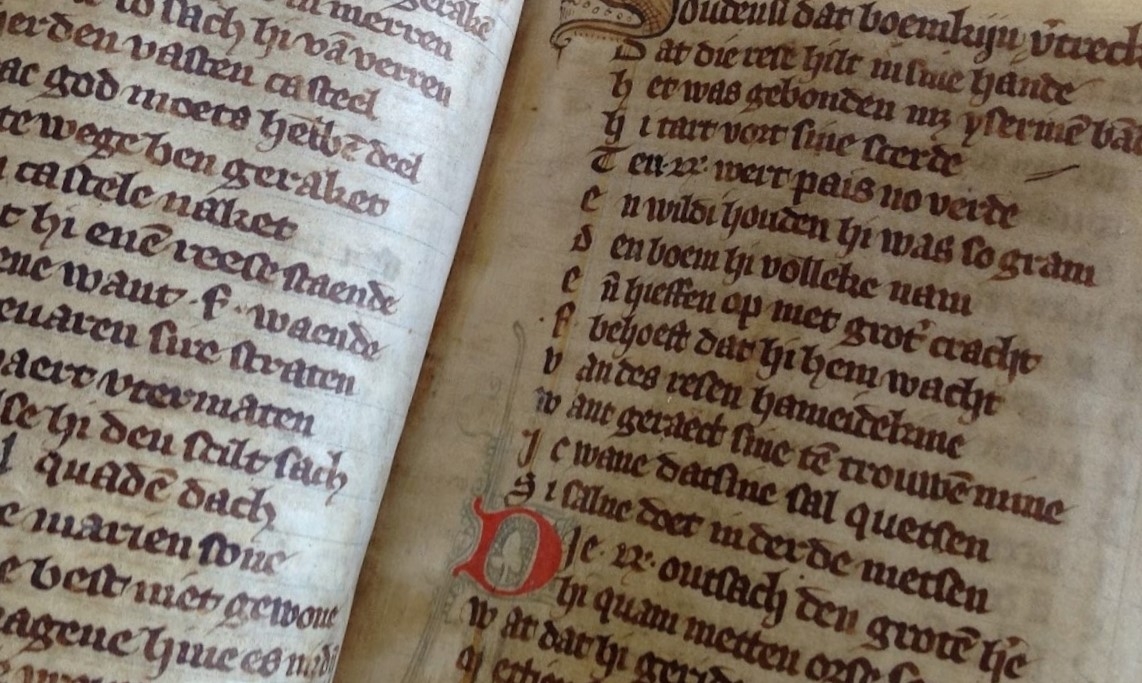 gerake
to sach hi vā verren
erden vasten casteel
god moets hebbē deel
te wege ben geraket
castele naket
hi enē reese staende
ene want .f. waende
sire straten
vtermaten
se hi den scilt sach
quadē dach
e marien sone
e best niet gewone
hine es
dat boemkijn
Dat die rese hilt in sine hande
het was gebonden mȝ yserinē
hi tart vort sine sterde
Ten .rr. wert pais no verde
en wildi houden hi was so gram
den boem hi volleke nam
eñ hieffen op met grot' cracht
f behoeft dat hi hem wacht
van des resen hameidekine
want geraect sine tē trouwē mine
Jc wane dat sine sal quetsen
Si salne doet in der de metsen
DJe .rr. ontsach den grotē
hi quam metten orse
wat dat hi